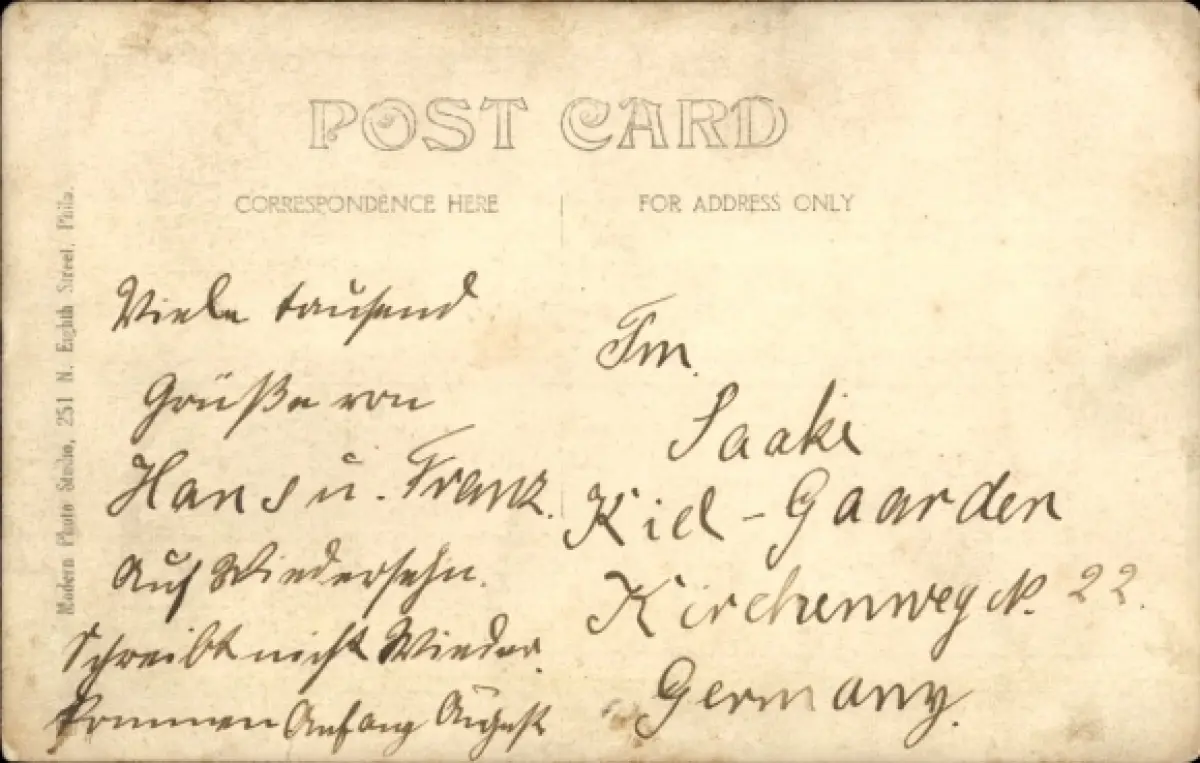 POST CARD
CORRESPONDENCE HERE
FOR ADDRESS ONLY
Modern Photo Studio, 251 N. Eighth Street, Phila.
Viele tausend
Grüße von
Hans u. Franz.
Auf Wiedersehn.
Schreibt nicht Wieder.
kommen Anfang August
Fm.
Saake
Kiel - Gaarden
Kirchenweg N. 22.
Germany.